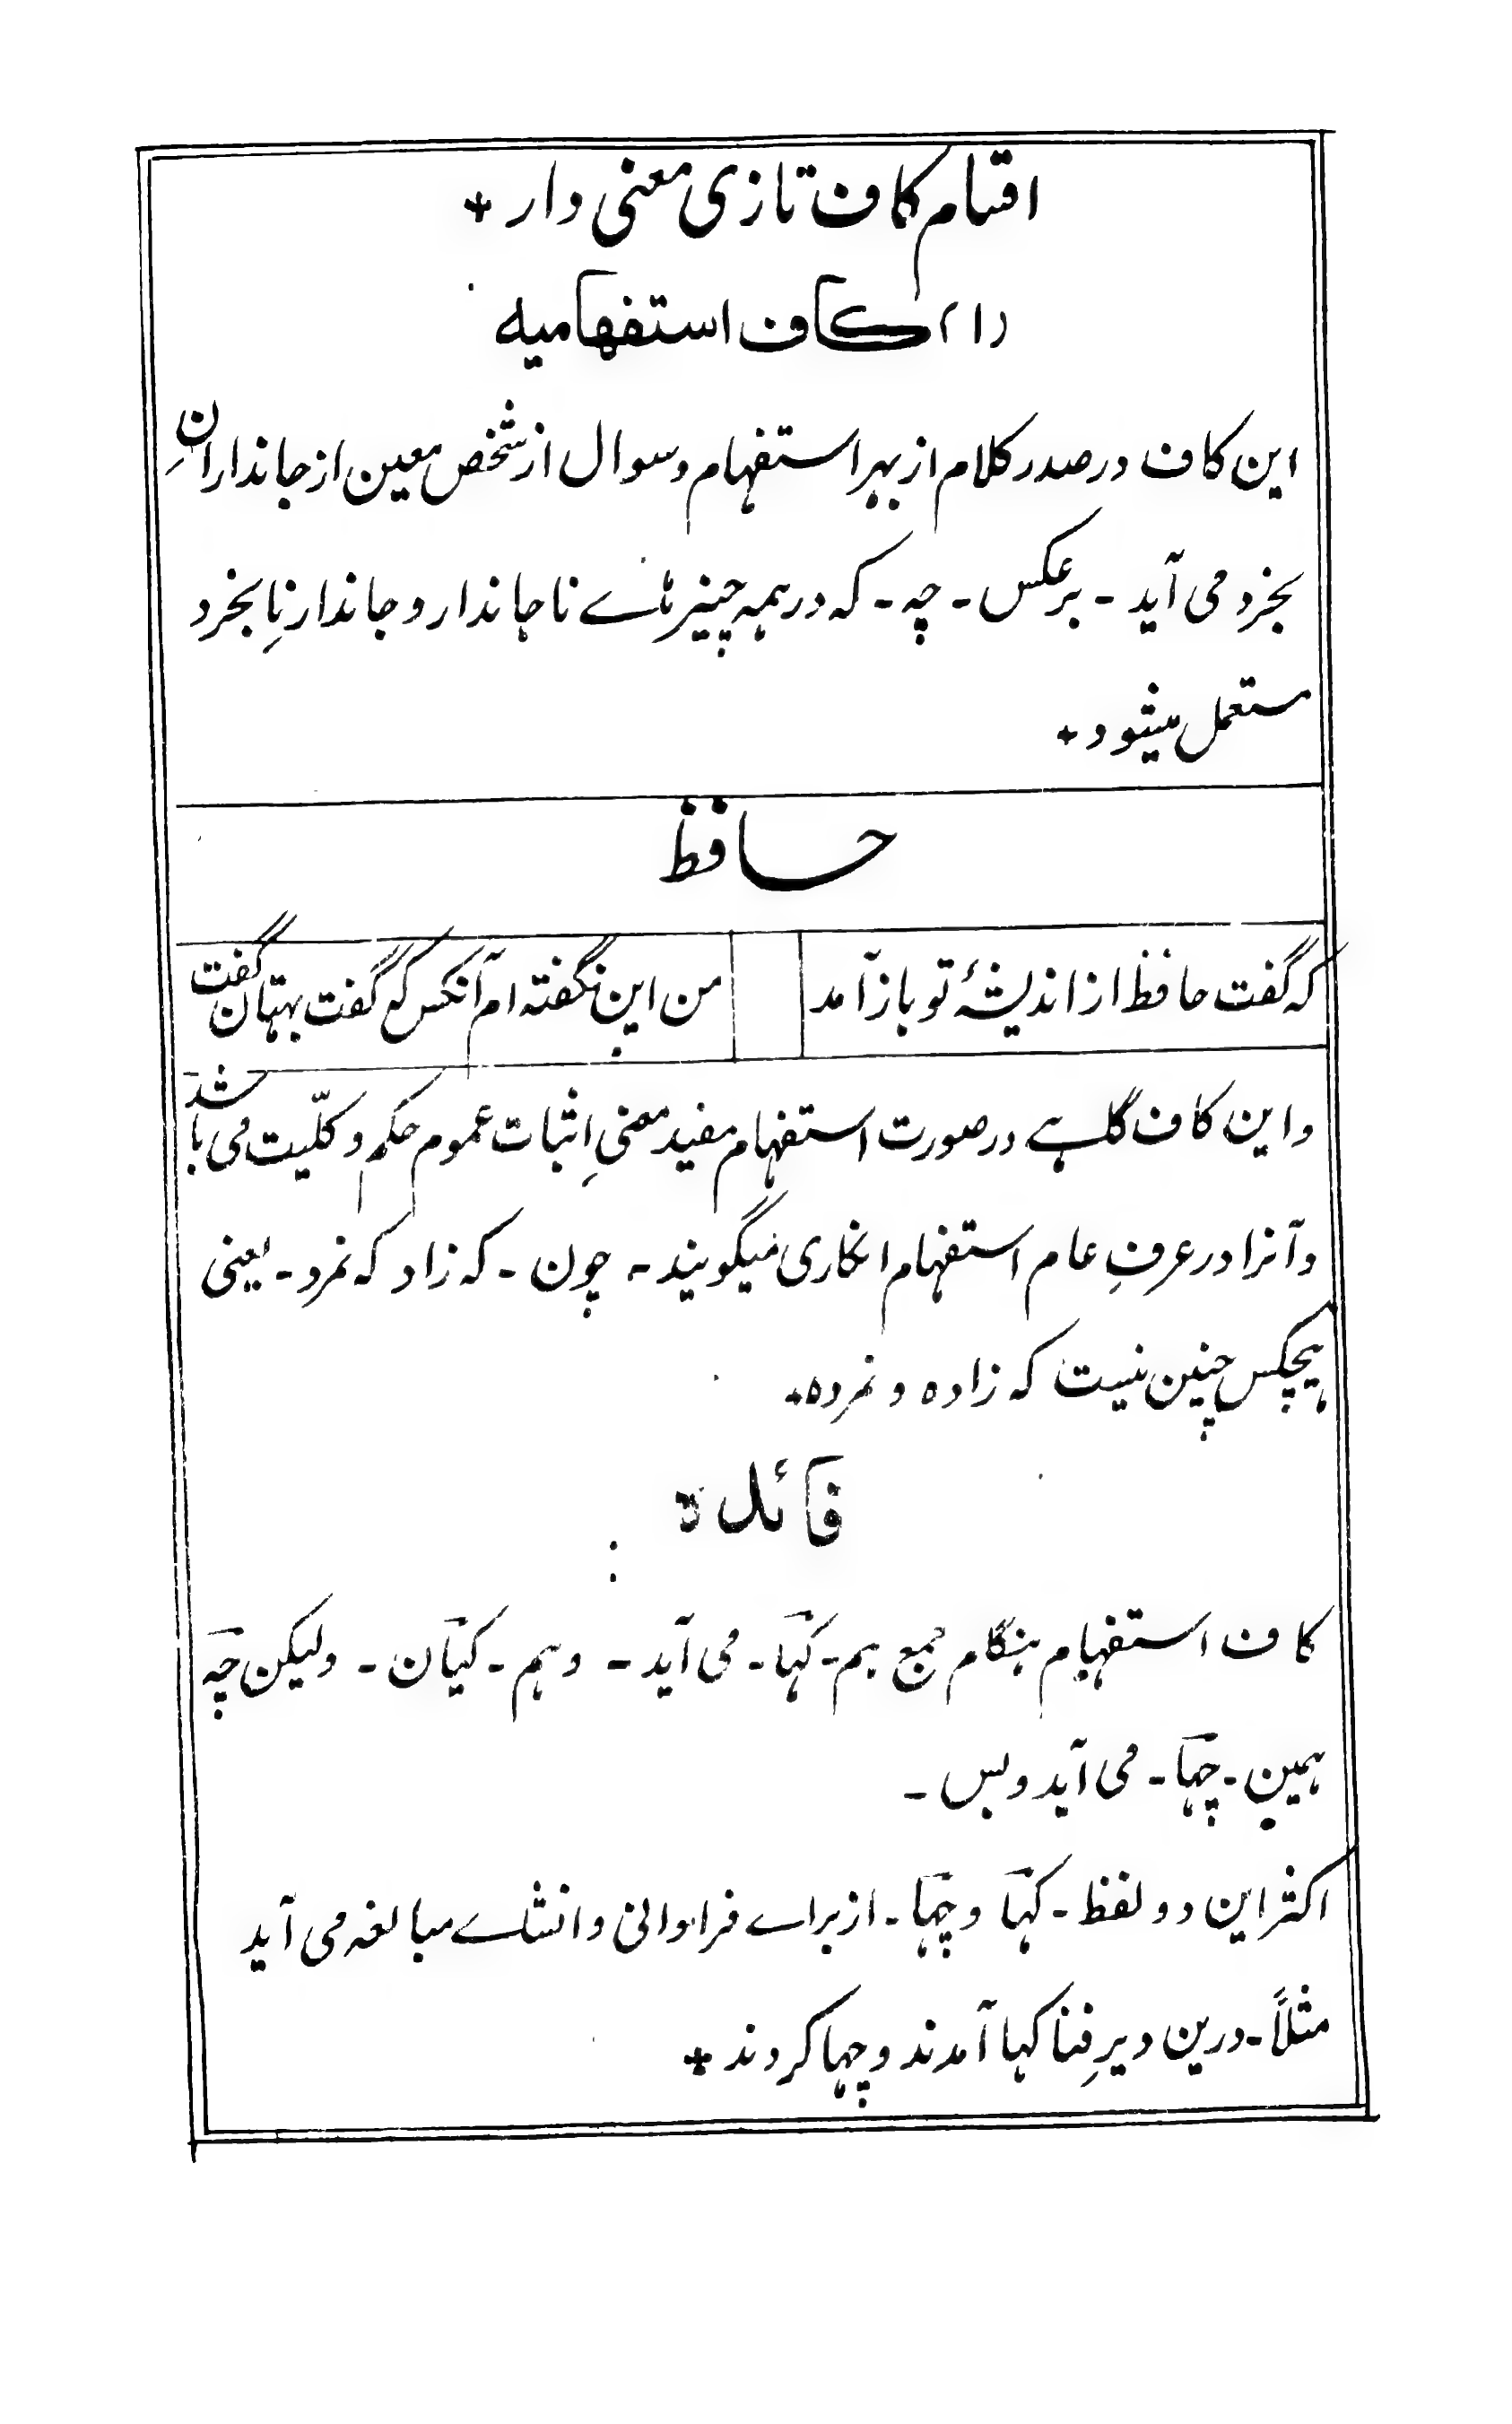 اقسام کاف تازی معنی دار +
(۱) کاف استفهامیه
این کاف در صدر کلام از بهر استفهام و سوال از شخص معین از جاندارانِ
بخرد می آید - برعکس - چه - که در همه چیز هاے ناجاندار و جاندار نابخرد
مستعمل میشود +
حافظ
که گفت حافظ از اندیشۀ تو باز آمد
من این نگفته ام آنکس که گفت بهتان گفت
و این کاف گاہے در صورت استفهام مفید معنیِ اثبات عموم حکم و کلّیت می باشد
و آنرا در عرفِ عام استفهام انکاری میگویند - چون - که زاد که نمرد - یعنی
هیچکس چنین نیست که زاده و نمرده +
فائدة
کاف استفهام هنگام جمع هم - کہا - می آید - و هم - کیان - ولیکن چه
همین - چہا - می آید و بس -
اکثر این دو لفظ - کہا و چہا - از براے فراوانی و انشاے مبالغه می آید
مثلاً - درین دیرِ فنا کہا آمدند و چہا کردند +